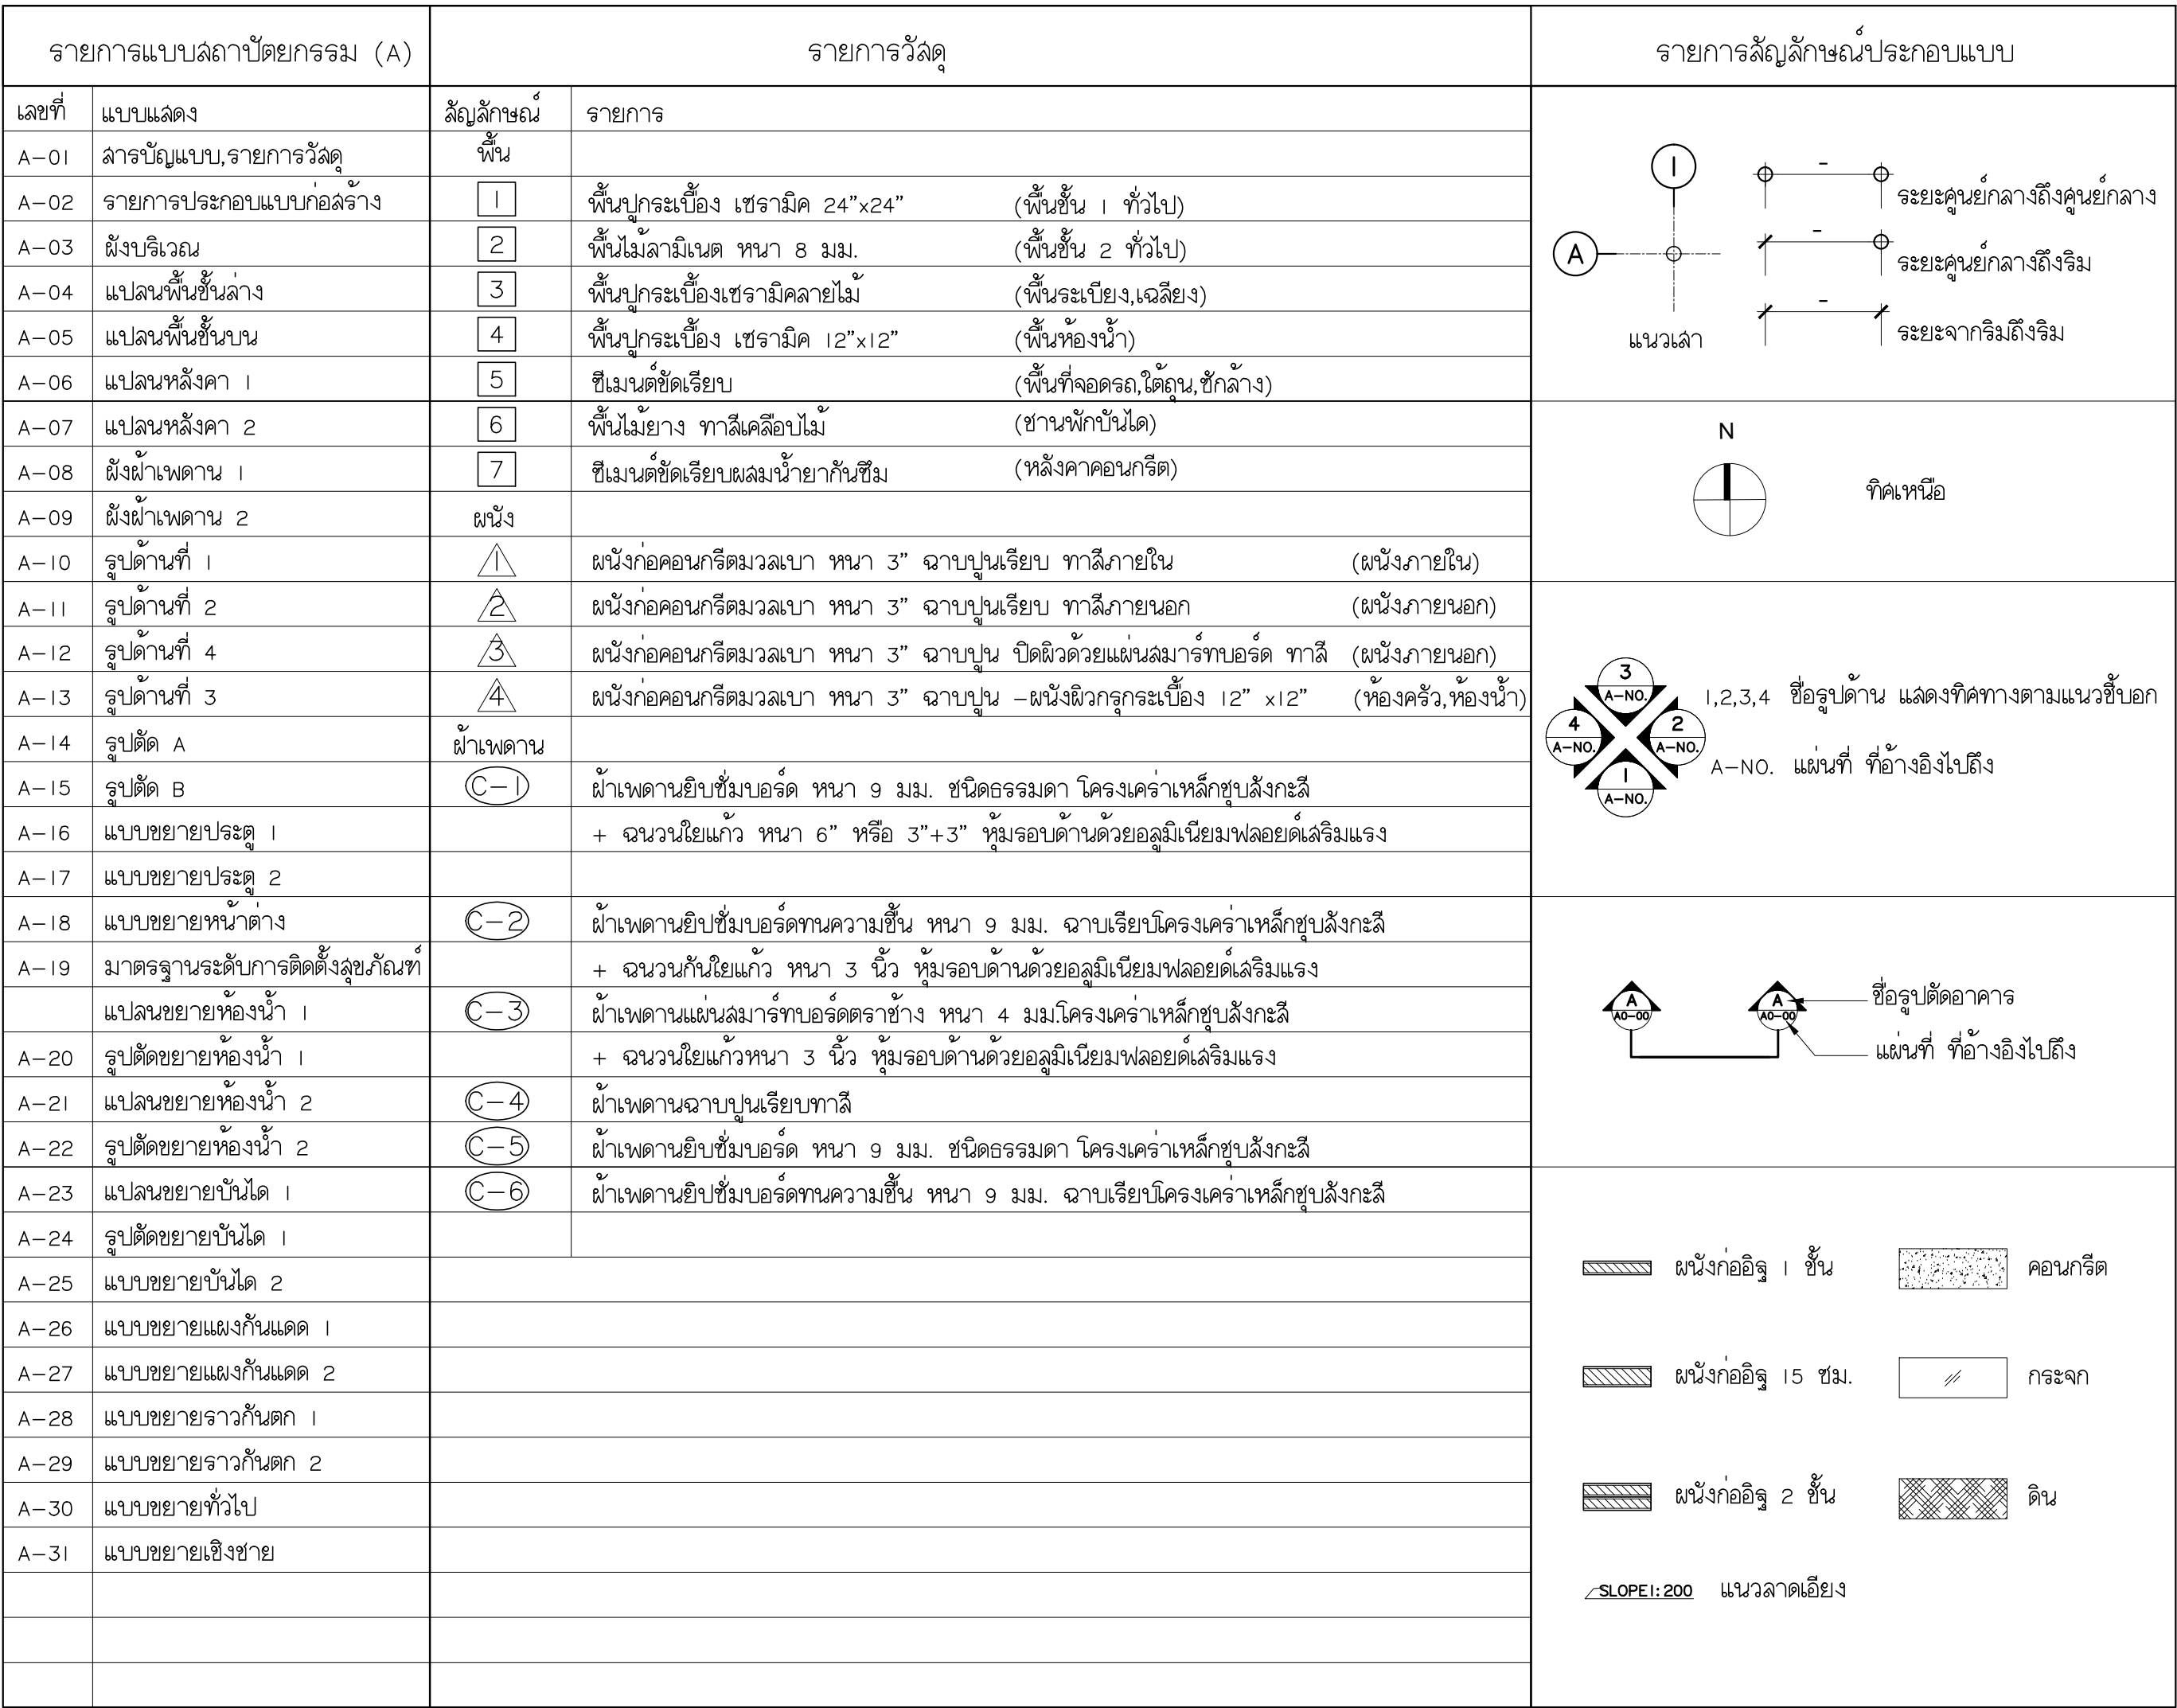 รายการแบบสถาปัตยกรรม (A)
เลขที่ แบบแสดง
A-01 สารบัญแบบ,รายการวัสดุ
A-02 รายการประกอบแบบก่อสร้าง
A-03 ผังบริเวณ
A-04 แปลนพื้นชั้นล่าง
A-05 แปลนพื้นชั้นบน
A-06 แปลนหลังคา 1
A-07 แปลนหลังคา 2
A-08 ผังฝ้าเพดาน 1
A-09 ผังฝ้าเพดาน 2
A-10 รูปด้านที่ 1
A-11 รูปด้านที่ 2
A-12 รูปด้านที่ 4
A-13 รูปด้านที่ 3
A-14 รูปตัด A
A-15 รูปตัด B
A-16 แบบขยายประตู 1
A-17 แบบขยายประตู 2
A-18 แบบขยายหน้าต่าง
A-19 มาตรฐานระดับการติดตั้งสุขภัณฑ์
แปลนขยายห้องน้ำ 1
A-20 รูปตัดขยายห้องน้ำ 1
A-21 แปลนขยายห้องน้ำ 2
A-22 รูปตัดขยายห้องน้ำ 2
A-23 แปลนขยายบันได 1
A-24 รูปตัดขยายบันได 1
A-25 แบบขยายบันได 2
A-26 แบบขยายแผงกันแดด 1
A-27 แบบขยายแผงกันแดด 2
A-28 แบบขยายราวกันตก 1
A-29 แบบขยายราวกันตก 2
A-30 แบบขยายทั่วไป
A-31 แบบขยายเชิงชาย
รายการวัสดุ
สัญลักษณ์ รายการ
พื้น
1 พื้นปูกระเบื้อง เซรามิค 24"x24" (พื้นชั้น 1 ทั่วไป)
2 พื้นไม้ลามิเนต หนา 8 มม. (พื้นชั้น 2 ทั่วไป)
3 พื้นปูกระเบื้องเซรามิคลายไม้ (พื้นระเบียง,เฉลียง)
4 พื้นปูกระเบื้อง เซรามิค 12"x12" (พื้นห้องน้ำ)
5 ซีเมนต์ขัดเรียบ (พื้นที่จอดรถ,ใต้ถุน,ซักล้าง)
6 พื้นไม้ยาง ทาสีเคลือบไม้ (ชานพักบันได)
7 ซีเมนต์ขัดเรียบผสมน้ำยากันซึม (หลังคาคอนกรีต)
ผนัง
1 ผนังก่อคอนกรีตมวลเบา หนา 3" ฉาบปูนเรียบ ทาสีภายใน (ผนังภายใน)
2 ผนังก่อคอนกรีตมวลเบา หนา 3" ฉาบปูนเรียบ ทาสีภายนอก (ผนังภายนอก)
3 ผนังก่อคอนกรีตมวลเบา หนา 3" ฉาบปูน ปิดผิวด้วยแผ่นสมาร์ทบอร์ด ทาสี (ผนังภายนอก)
4 ผนังก่อคอนกรีตมวลเบา หนา 3" ฉาบปูน -ผนังผิวกรุกระเบื้อง 12" x12" (ห้องครัว,ห้องน้ำ)
ฝ้าเพดาน
C-1 ฝ้าเพดานยิบซั่มบอร์ด หนา 9 มม. ชนิดธรรมดา โครงเคร่าเหล็กชุบสังกะสี
+ ฉนวนใยแก้ว หนา 6" หรือ 3"+3" หุ้มรอบด้านด้วยอลูมิเนียมฟลอยด์เสริมแรง
C-2 ฝ้าเพดานยิปซั่มบอร์ดทนความชื้น หนา 9 มม. ฉาบเรียบโครงเคร่าเหล็กชุบสังกะสี
+ ฉนวนกันใยแก้ว หนา 3 นิ้ว หุ้มรอบด้านด้วยอลูมิเนียมฟลอยด์เสริมแรง
C-3 ฝ้าเพดานแผ่นสมาร์ทบอร์ดตราช้าง หนา 4 มม.โครงเคร่าเหล็กชุบสังกะสี
+ ฉนวนใยแก้วหนา 3 นิ้ว หุ้มรอบด้านด้วยอลูมิเนียมฟลอยด์เสริมแรง
C-4 ฝ้าเพดานฉาบปูนเรียบทาสี
C-5 ฝ้าเพดานยิบซั่มบอร์ด หนา 9 มม. ชนิดธรรมดา โครงเคร่าเหล็กชุบสังกะสี
C-6 ฝ้าเพดานยิปซั่มบอร์ดทนความชื้น หนา 9 มม. ฉาบเรียบโครงเคร่าเหล็กชุบสังกะสี
รายการสัญลักษณ์ประกอบแบบ
1
A
แนวเสา
-
ระยะศูนย์กลางถึงศูนย์กลาง
-
ระยะศูนย์กลางถึงริม
-
ระยะจากริมถึงริม
N
ทิศเหนือ
3
A-NO.
4
A-NO.
2
A-NO.
1
A-NO.
1,2,3,4 ชื่อรูปด้าน แสดงทิศทางตามแนวชี้บอก
A-NO. แผ่นที่ ที่อ้างอิงไปถึง
A
A0-00
A
A0-00
ชื่อรูปตัดอาคาร
แผ่นที่ ที่อ้างอิงไปถึง
ผนังก่ออิฐ 1 ชั้น คอนกรีต
ผนังก่ออิฐ 15 ซม. กระจก
ผนังก่ออิฐ 2 ชั้น ดิน
SLOPE1:200 แนวลาดเอียง